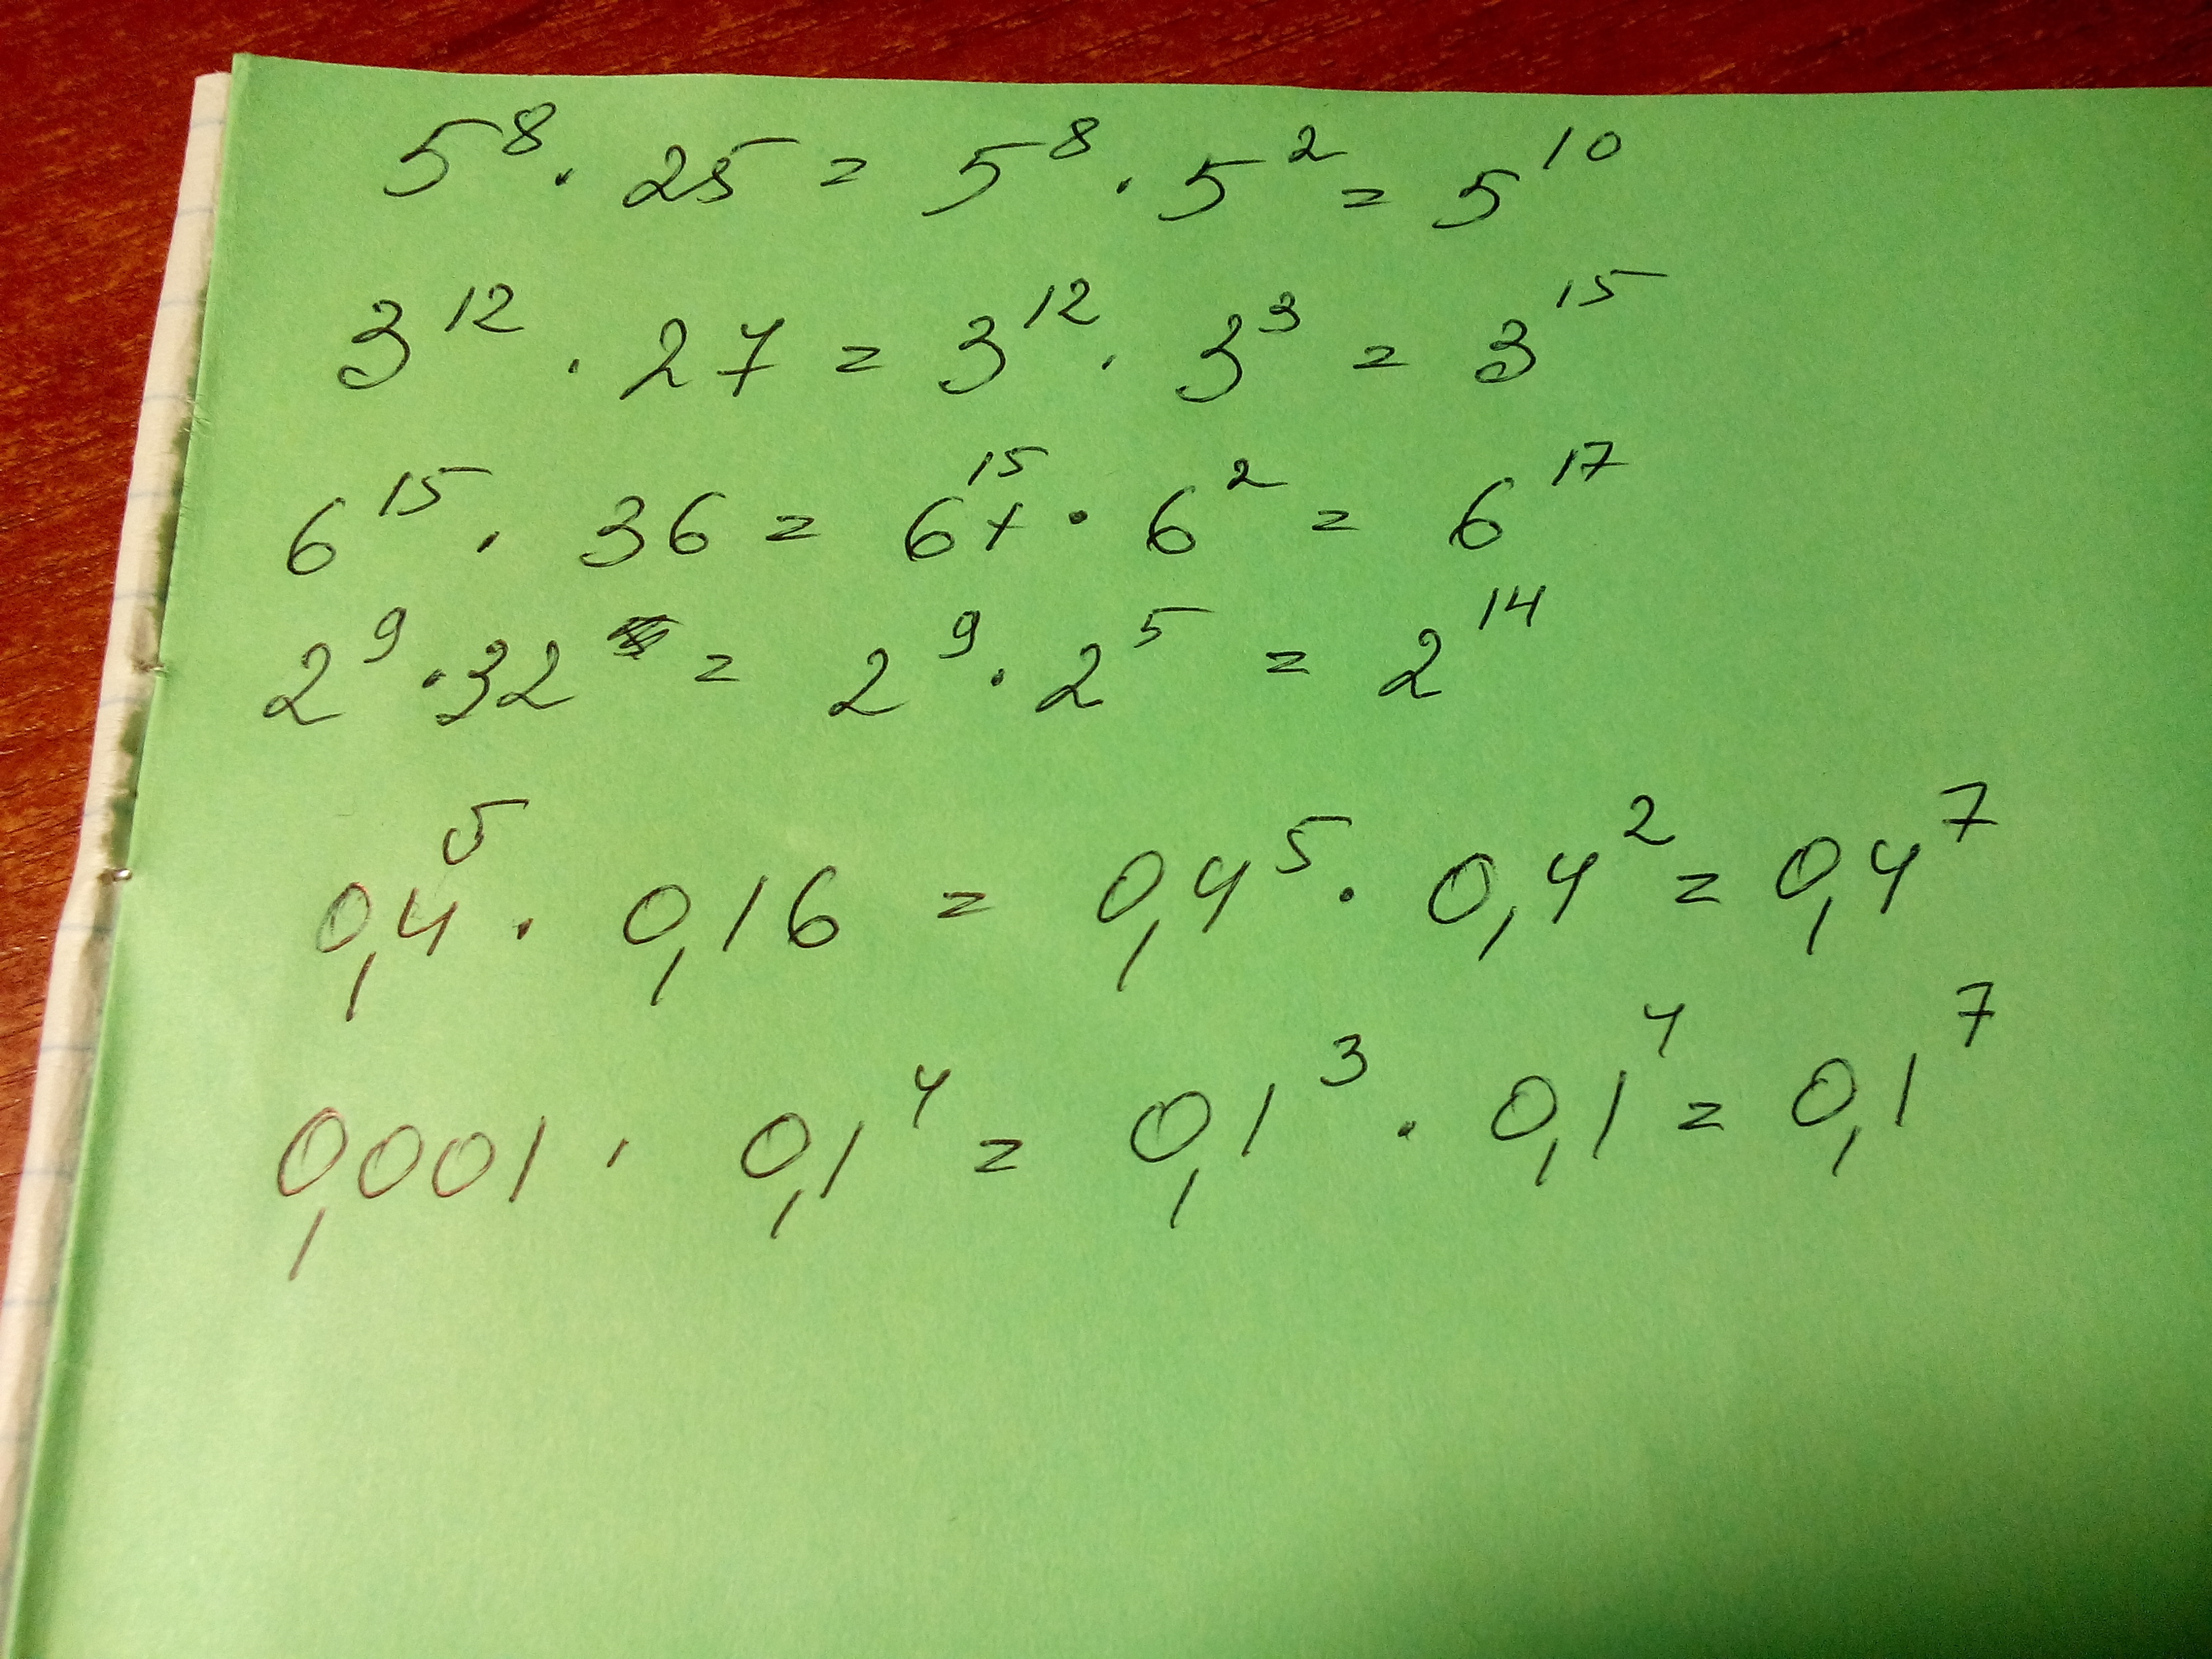 5⁸ · 25 = 5⁸ · 5² = 5¹⁰
3¹² · 27 = 3¹² · 3³ = 3¹⁵
6¹⁵ · 36 = 6¹⁵ · 6² = 6¹⁷
2⁹ · 32 = 2⁹ · 2⁵ = 2¹⁴
0,4⁵ · 0,16 = 0,4⁵ · 0,4² = 0,4⁷
0,0001 · 0,1⁴ = 0,1³ · 0,1⁴ = 0,1⁷